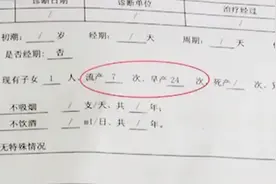 诊断日期 诊断单位 治疗经过
/ / /
初潮： / 岁 经期： / 天 周期： / 天
是否经期：否
现有子女 1 人，流产 7 次，早产 24 次，死产 /
不吸烟 / 支/天、共 / 年；
不饮酒 / ml/日、共 / 年；
无特殊情况